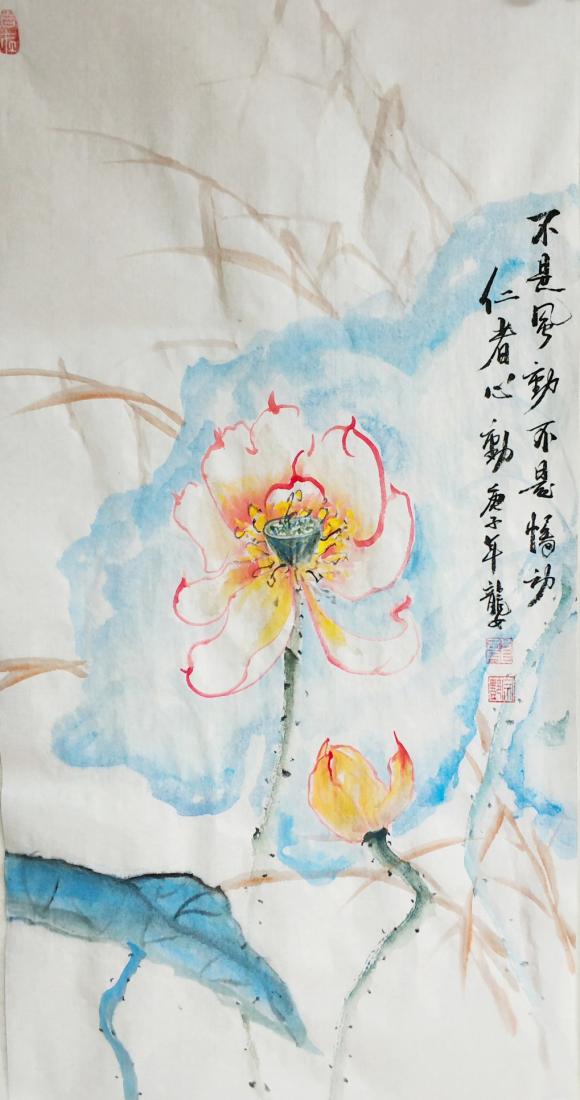 不是風動不是幡动
仁者心動庚子年